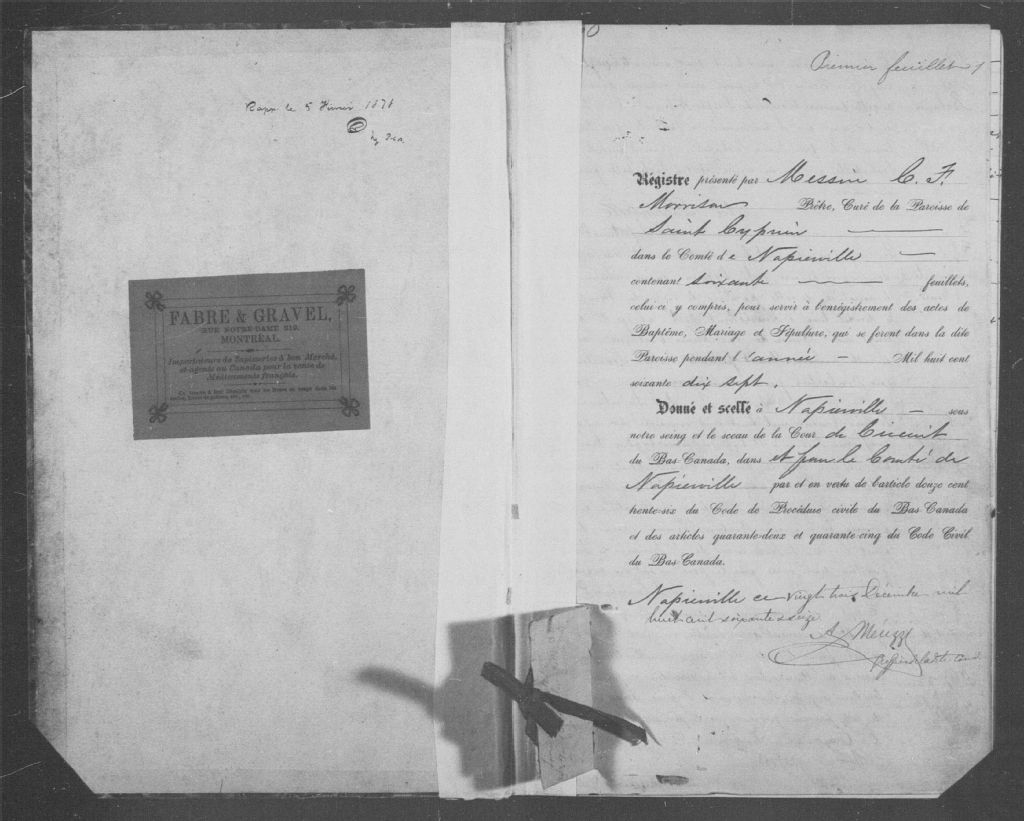 Rapp. le 5 Février 1878
FABRE & GRAVEL,
RUE NOTRE-DAME 219.
MONTRÉAL.
Importateurs de Tapisseries à bon Marché,
et agents au Canada pour la vente de
Médicaments français.
Premier feuillet 1
Régistre présenté par Messire C. F.
Morrison Prêtre, Curé de la Paroisse de
Saint Cyprien
dans le Comté de Napierville
contenant soixante feuillets,
celui-ci y compris, pour servir à l'enrégistrement des actes de
Baptême, Mariage et Sépulture, qui se feront dans la dite
Paroisse pendant l'année Mil huit cent
soixante dix sept.
Donné et scellé à Napierville sous
notre seing et le sceau de la Cour de Circuit
du Bas-Canada, dans et pour le Comté de
Napierville par et en vertu de l'article douze cent
trente-six du Code de Procédure civile du Bas-Canada
et des articles quarante-deux et quarante-cinq du Code Civil
du Bas-Canada.
Napierville ce vingt trois Décembre mil
huit cent soixante & seize